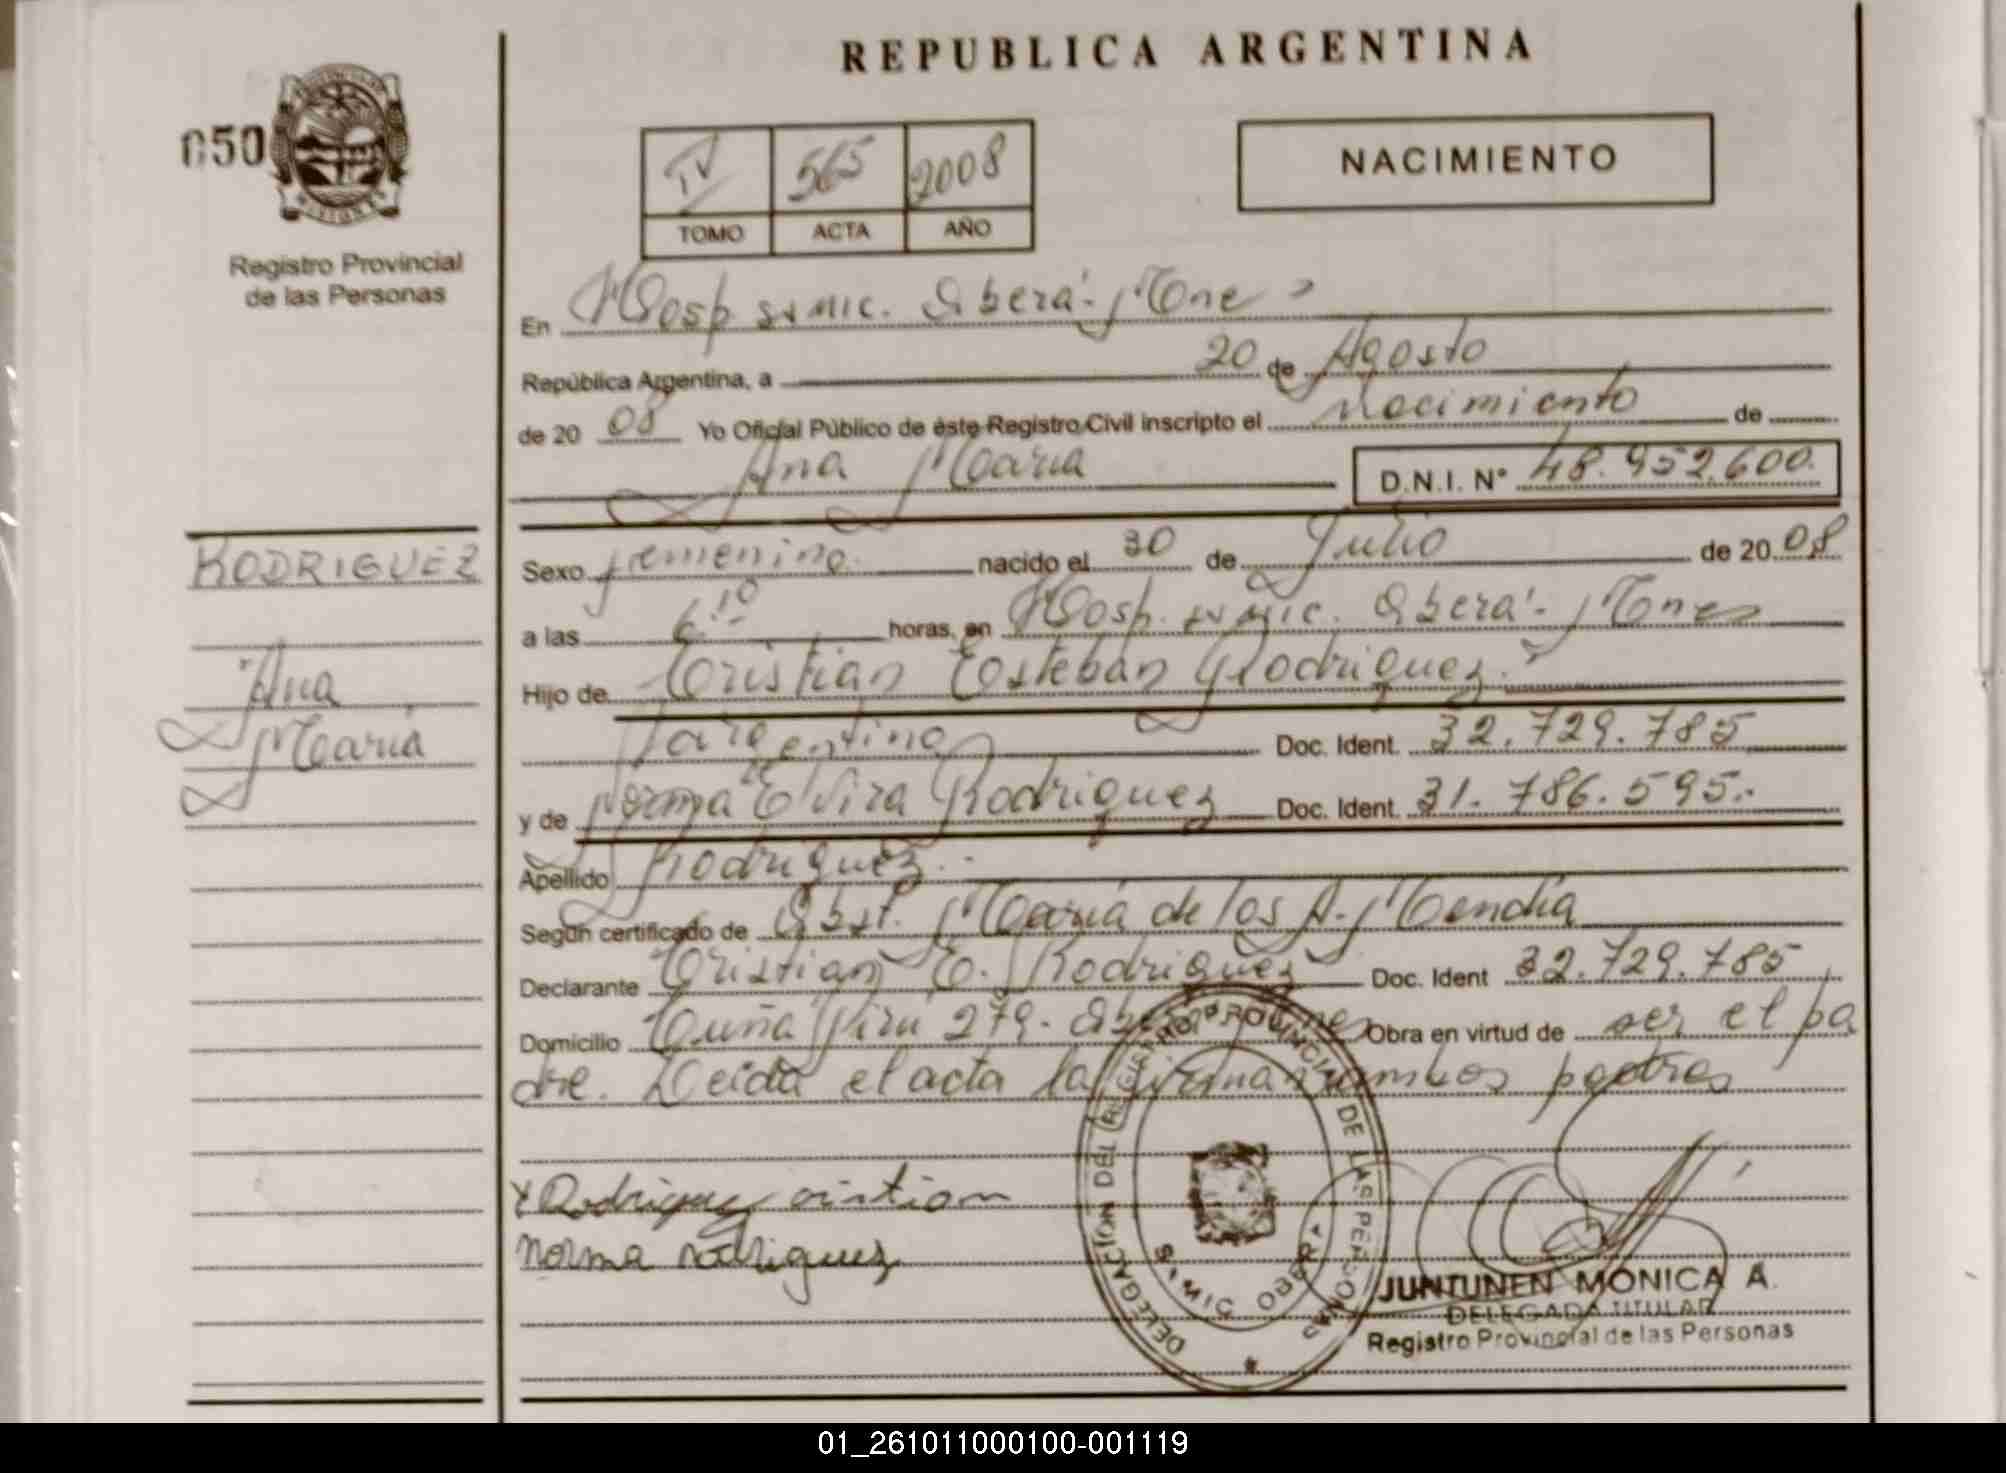 REPUBLICA ARGENTINA
050
Registro Provincial
de las Personas
IV 565 2008
TOMO ACTA AÑO
NACIMIENTO
En Hosp SAMIC. Oberá - Mnes
República Argentina, a 20 de Agosto
de 20 08 Yo Oficial Público de éste Registro Civil inscripto el Nacimiento de
Ana Maria D.N.I. N° 48.952.600.
RODRIGUEZ
Ana
Maria
Sexo femenino nacido el 30 de Julio de 20 08
a las 6:10 horas, en Hosp. SAMIC. Oberá - Mnes
Hijo de Cristian Esteban Rodriguez.
argentino Doc. Ident. 32.729.785
y de Norma Elvira Rodriguez Doc. Ident. 31.786.595.-
Apellido Rodriguez.-
Según certificado de Obst. Maria de los A. Mendia
Declarante Cristian E. Rodriguez Doc. Ident 32.729.785
Domicilio Cuña Pirú 279. Obra en virtud de ser el pa
dre. Leida el acta la firman ambos padres
Rodriguez cristian
norma rodriguez
DELEGACION DEL REGISTRO PROVINCIAL DE LAS PERSONAS
S.A.M.I.C OBERA
JUNTUNEN MONICA A.
DELEGADA TITULAR
Registro Provincial de las Personas
01_261011000100-001119